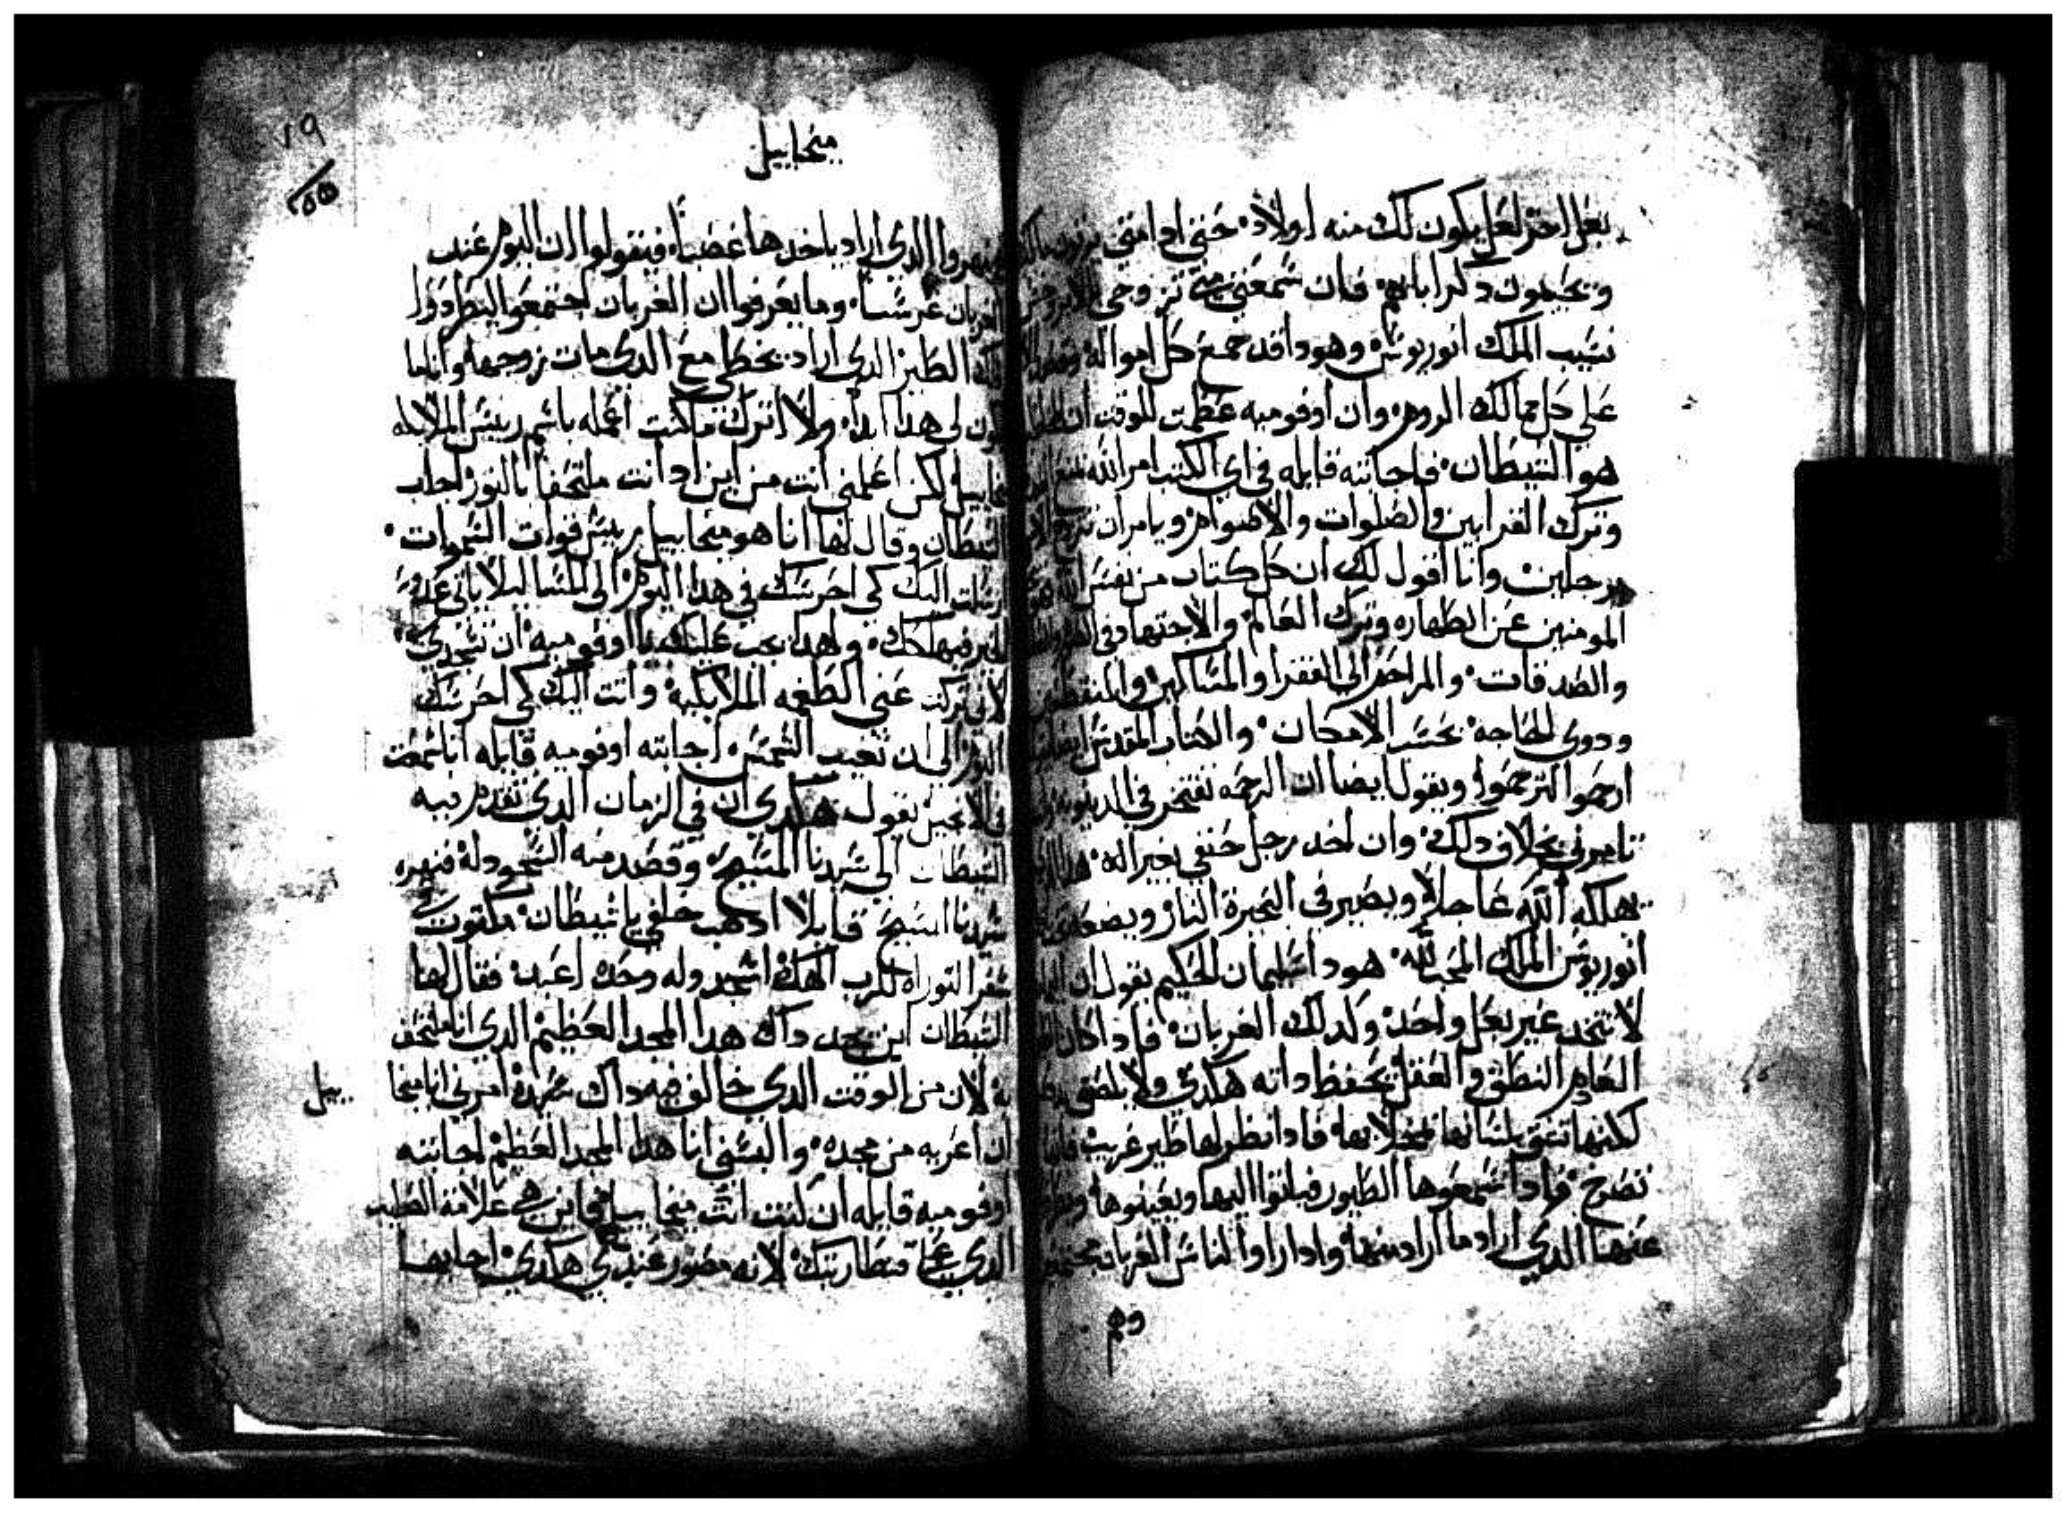 بعل اخر لعل يكون لك منه اولاد حتي ادا متي
ويحيون دكر اباهم فان سمعتي مني تزوجي
نسيب الملك انوريوس وهودا قد جمع كل امواله
علي كل ممالك الروم وان اوفوميه عظمت للوقت ان
هو الشيطان فاجابته قايله في اي الكتب امر الله
وترك القرابين والصلوات والاصوام ويامر ان
برجلين وانا اقول لك ان كل كتاب من نفس الله
المومنين عن الطهاره وترك العالم والاجتهاد في
والصدقات والمراحم الي الفقرا والمساكين والمنقطعين
ودوي الحاجه بحسب الامكان والكتاب المقدس
ارحموا لترحموا ويقول ايضا ان الرحمه تفتخر في الدينونه
تامرني بخلاف دلك وان احد رجل حنفي بغير اله
يهلكه الله عاجلا ويصير في البحيرة النار
انوريوس الملك المحب لله هودا سليمان الحكيم يقول ان
لا تتخد غير بعل واحد ولدلك الغربان فادا كان
العادم النطق والعقل يحفظ داته هكدي ولا
لكنها تعق بلسانها فادا نظر لها طير غريب
تصرخ فادا سمعوها الطيور فياتوا اليها ويعينوها
عنها الدي اراد ما اراد منها وادا راوا الناس الغربان
وم
ميخاييل
١٩
الدي اراد ياخدها غصبا فيقولوا ان اليوم عند
الغربان عرسا وما يعرفوا ان الغربان اجتمعوا ليطردوا
الطير الدي اراد يخطي مع الدي مات زوجها وانا ما
يكون لي هدا ابدا ولا اترك ما كنت اعمله باسم رييس الملايكه
ميخاييل لكن اعلمني انت من اين اد انت ملتحفا بالنور اجاب
الشيطان وقال لها انا هو ميخاييل رييس قوات السموات
ارسلت اليك كي احرسك في هدا اليوم الي المسا ليلا ياتي عدو
الخير فيهلكك ولهدا يجب عليك يا اوفوميه ان تسجدي
لاني تركت عني الطغمه الملايكيه واتت اليك كي احرسك
اليوم الي ان تغيب الشمس اجابته اوفوميه قايله انا سمعت
في الانجيل يقول هكدي ان في الزمان الدي تقدم فيه
الشيطان الي سيدنا المسيح وقصد منه السجود له فنهره
سيدنا المسيح قايلا ادهب خلفي يا شيطان مكتوب في
سفر التوراه للرب الهك اسجد وله وحده اعبد فقال لها
الشيطان اين يجد داك هدا المجد العظيم الدي انا ملتحف
به لان من الوقت الدي خالف فيه داك سيده امرني انا ميخا
ييل
ان اعريه من مجده والبسني انا هدا المجد العظيم اجابته
اوفوميه قايله ان كنت انت ميخاييل فاين هي علامة الصليب
الدي علي قنطاريتك لانه مصور عندي هكدي اجابها